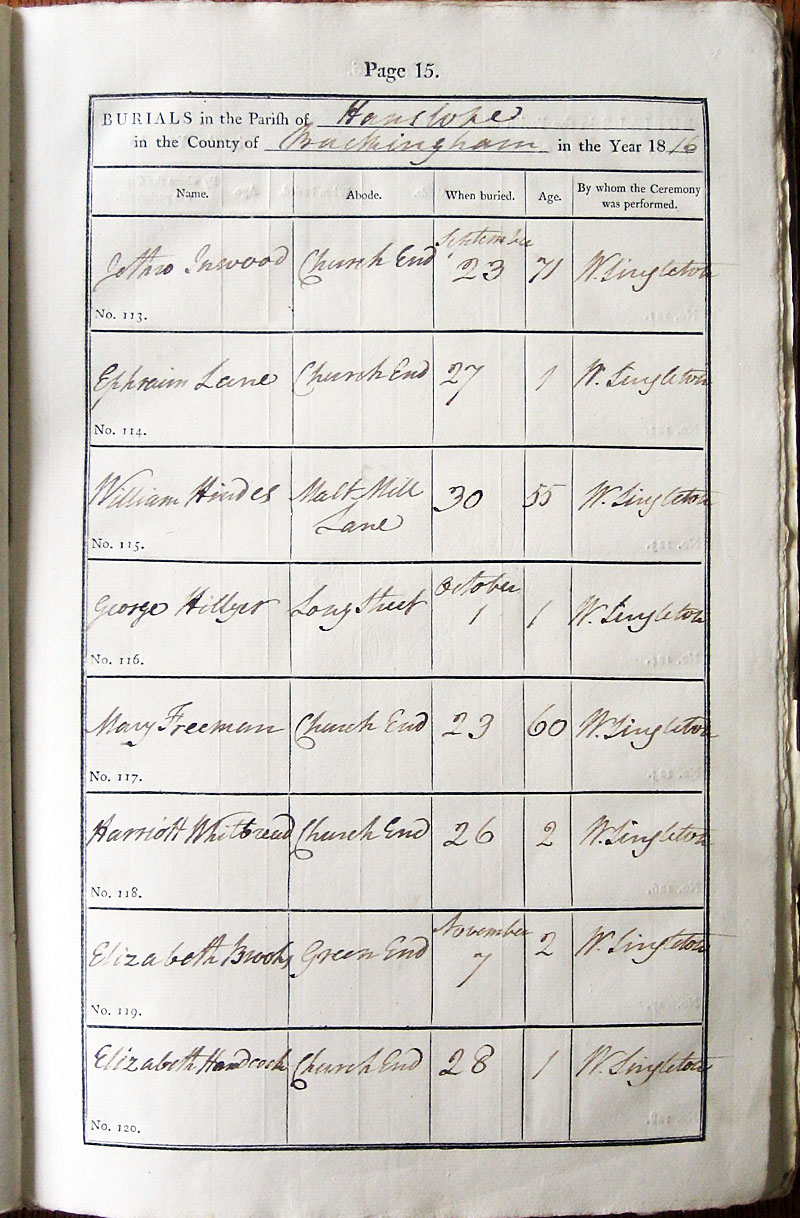 Page 15.
BURIALS in the Parish of Hanslope
in the County of Buckingham in the Year 1816
Name. Abode. When buried. Age. By whom the Ceremony was performed.
September
Jethro Inwood Church End 23 71 W. Singleton
No. 113.
Ephraim Lane Church End 27 1 W. Singleton
No. 114.
William Hindes Malt Mill 30 55 W. Singleton
Lane
No. 115.
October
George Hillyer Long Street 1 1 W. Singleton
No. 116.
Mary Freeman Church End 23 60 W. Singleton
No. 117.
Harriott Whitbread Church End 26 2 W. Singleton
No. 118.
November
Elizabeth Brooks Green End 7 2 W. Singleton
No. 119.
Elizabeth Handcock Church End 28 1 W. Singleton
No. 120.